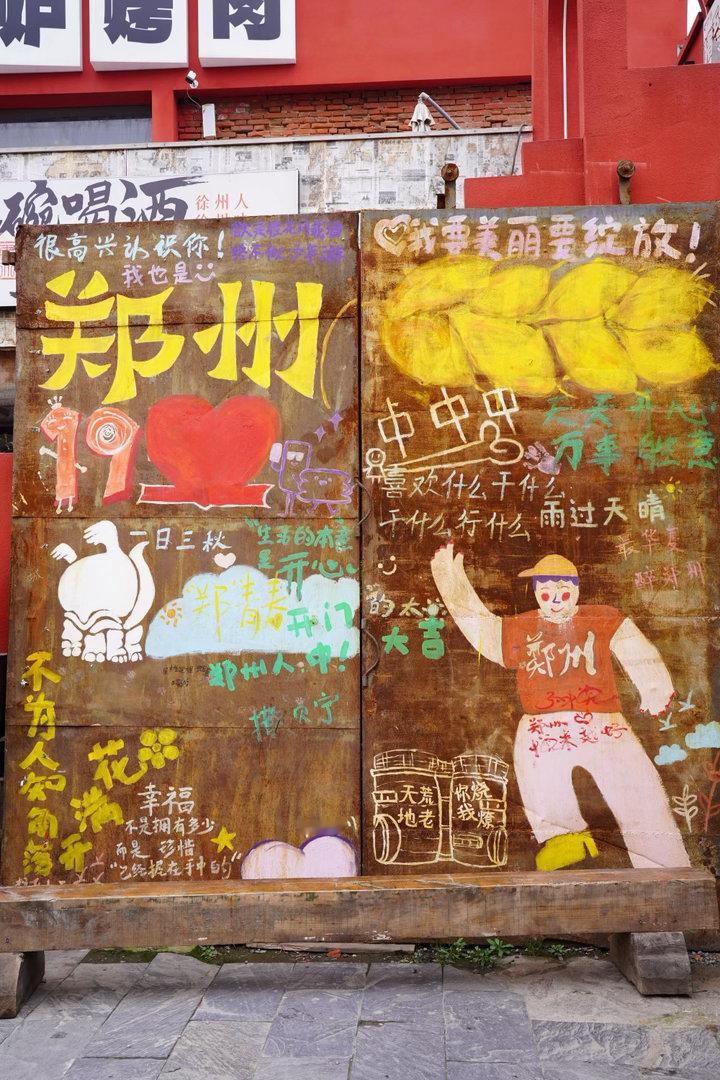 炉烤肉
碗喝酒
徐州人
很高兴认识你!
我也是
郑州
19
一日三秋
"生活的本意
是
开心
"郑"青春
开门
郑州人:中!
不为人知而落
花满开
幸福
不是拥有多少
而是 珍惜
"已经握在手中的"
我要美丽要绽放!
中中中
天天开心
万事胜意
喜欢什么干什么
干什么行什么
雨过天晴
最华夏
醉郑州
大吉
郑州
郑州
天荒地老
你烧我燎